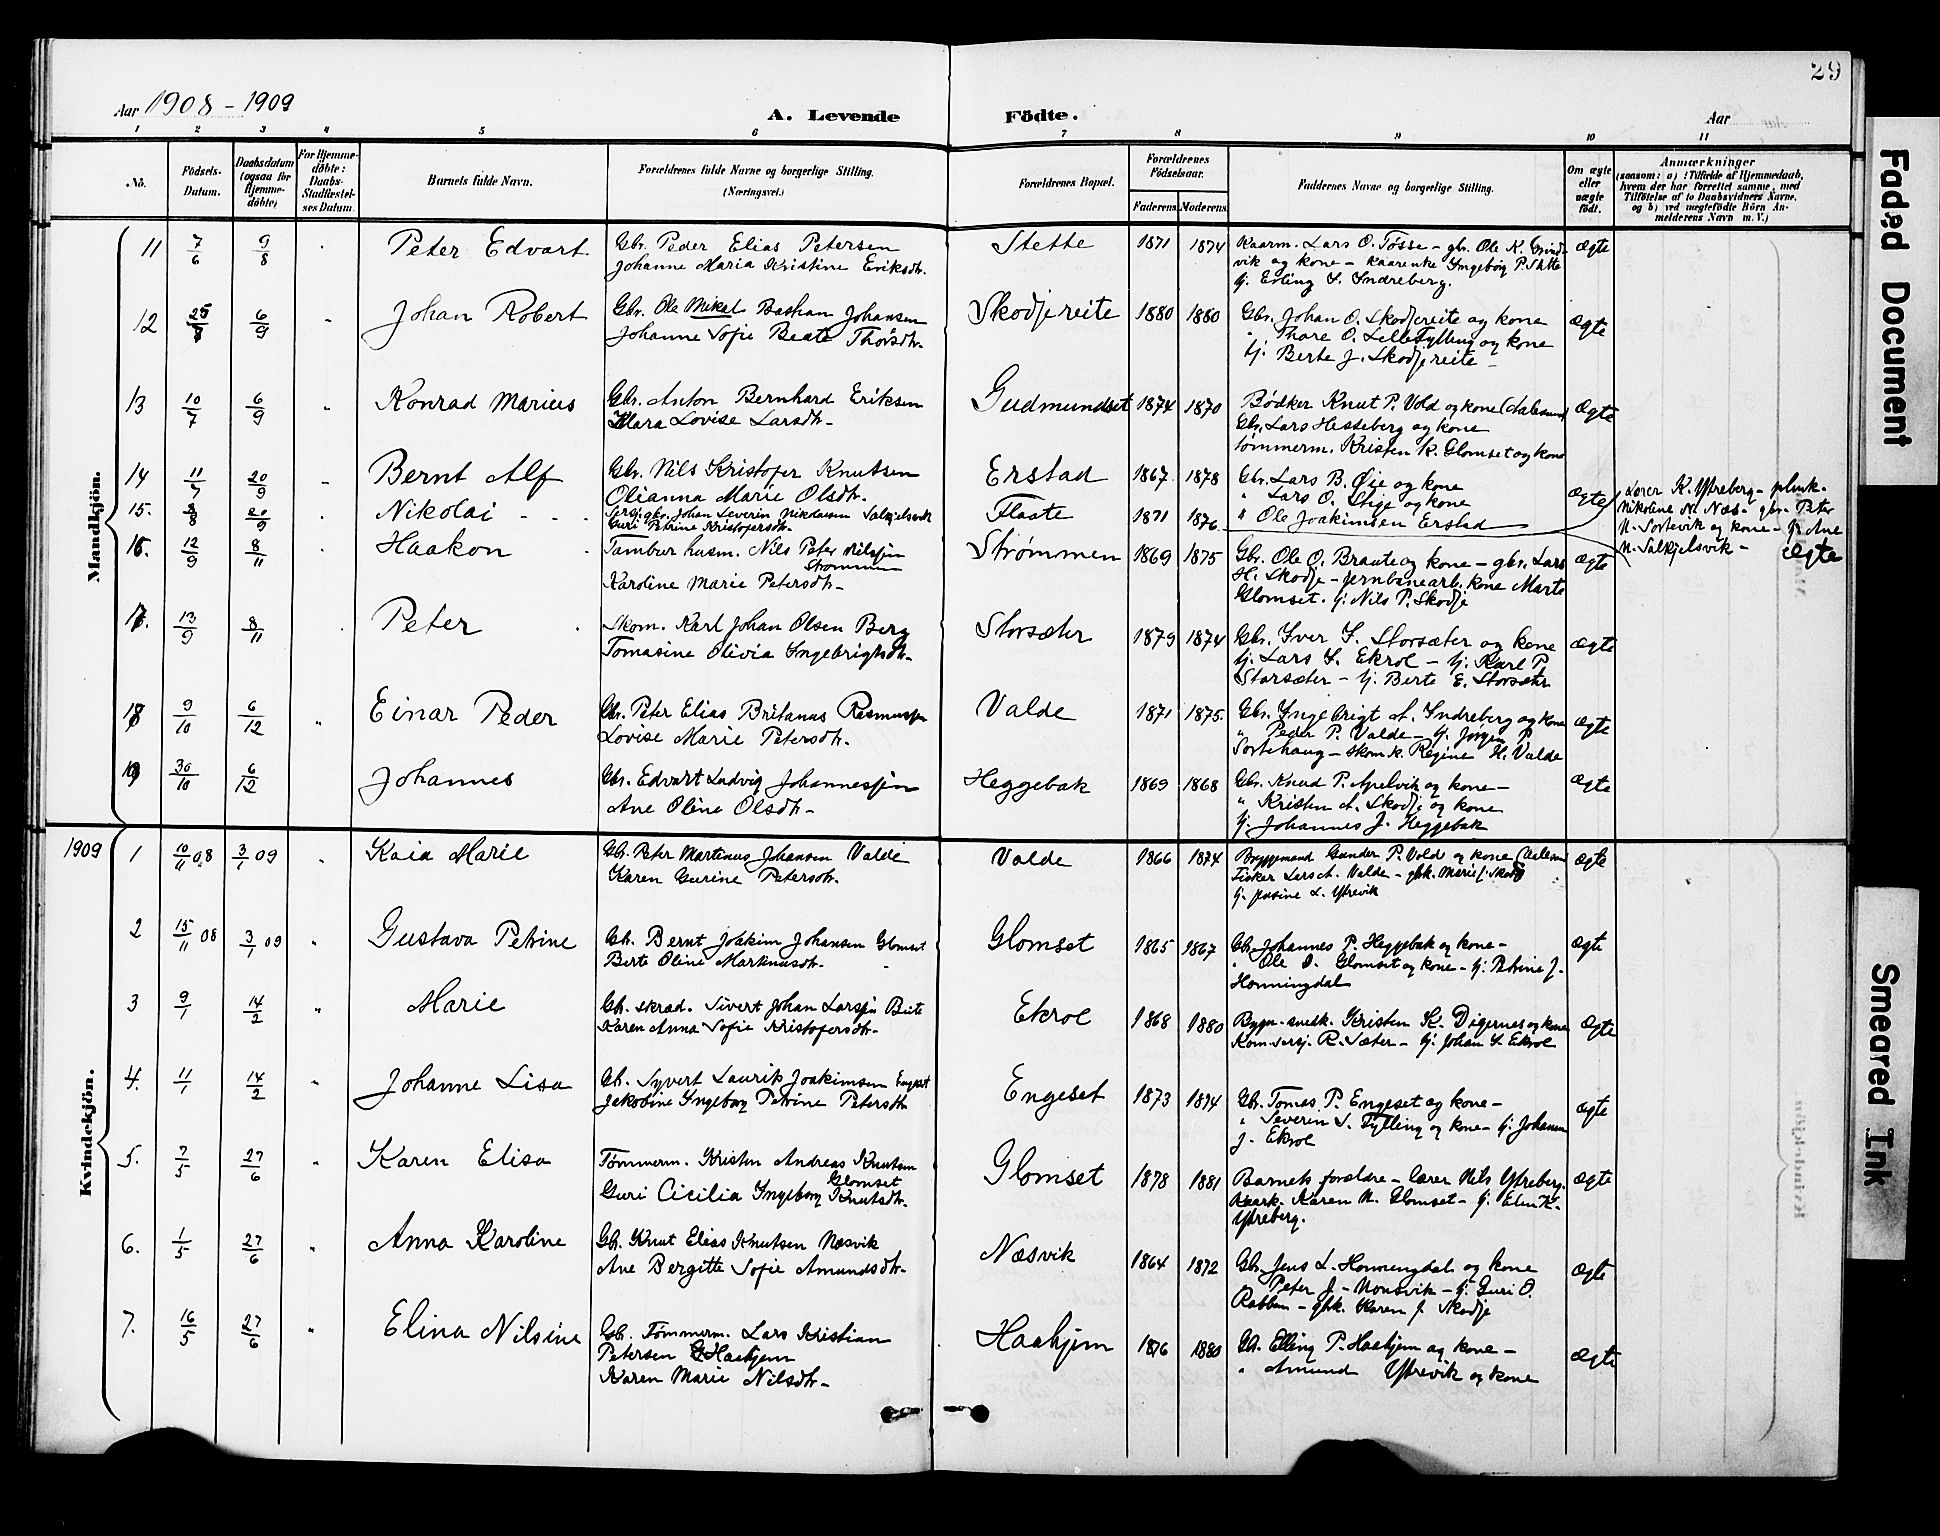 29
Aar 1908 - 1909
A. Levende Födte.
Aar
1 2 3 4 5 6 7 8 9 10 11
No.
Födsels-Datum.
Daabsdatum (ogsaa for Hjemme-döbte)
For Hjemme-döbte: Daabs-Stadfæstel-ses Datum.
Barnets fulde Navn.
Forældrenes fulde Navne og borgerlige Stilling. (Næringsvei.)
Forældrenes Bopæl.
Forældrenes Födselsaar.
Faderens Moderens
Faddernes Navne og borgerlige Stilling.
Om ægte eller uægte födt.
Anmærkninger
(saasom: a) i Tilfælde af Hjemmedaab, hvem der har forrettet samme, med Tilföielse af to Daabsvidners Navne, og b) ved uægtefödte Börn Anmelderens Navn m. V.)
Mandkjön.
11 7/6 9/8 Peter Edvart Gbr. Peder Elias Petersen Stette 1871 1874 Kaarm. Lars O. Tøsse - gbr. Ole K. Grind- Ægte
Johanne Maria Kristine Eriksdtr. vik og kone - Kaarenke Ingeborg P. Stette
Erling S. Indreberg.
12 25 6/9 Johan Robert Gbr. Ole Mikal Bastian Johansen Skodjereite 1880 1880 Gbr. Johan O. Skodjereite og kone Ægte
Johanne Sofie Beate Thorsdtr. " Thore O. Lillefylling og kone
Berte J. Skodjereite -
13 10/7 6/9 Konrad Marius Gbr. Anton Bernhard Eriksen Gudmundset 1874 1870 Bødker Knut P. Vold og kone (Aalesund) Ægte
Klara Lovise Larsdtr. - Gbr. Lars Hesseberg og kone
Tømmerm. Kristen K. Glomset og kone
14 11/7 20/9 Bernt Alf Gbr. Nils Kristofer Knutsen Erstad 1867 1878 Gbr. Lars B. Øie og kone Ægte
Olianna Marie Olsdtr. " Lars O. Stige og kone
15. 8/8 20/9 Nikolai - - - gbr. Johan Severin Nikolaisen Salkjelsvik Flaate 1871 1876 " Ole Joakimsen Erstad
Guri Petrine Kristofersdtr.
Lærer K. Ytreberg -
Nikoline N. Næs - gbr. Peter
N. Sortevik og kone - Ane
N. Salkjelsvik - Ægte
16. 12/9 8/11 Haakon Tambur husm. Nils Peter Nilssen Strømmen Strømmen 1869 1875 Gbr. Ole O. Braute og kone - gbr. Lars Ægte
Karoline Marie Petersdtr. - H. Skodje - jernbanearb. kone Marte
Glomset. Nils P. Skodje
17. 13/9 8/11 Peter Skom. Karl Johan Olsen Berg Storsæter 1879 1874 Gbr. Iver I. Storsæter og kone Ægte
Tomasine Olivia Ingebrigtsdtr. - Lars I. Ekrol - Karl P.
Storsæter - Berte E. Storsæter
18 9/10 6/12 Einar Peder Gbr. Peter Elias Britanus Rasmussen Valde 1871 1875. Gbr. Ingebrigt A. Indreberg og kone Ægte
Lovise Marie Petersdtr. - " Peder P. Valde - Jørgen P.
Sortehaug - skom. k. Regine H. Valde
19 30/10 6/12 Johannes Gbr. Edvart Ludvig Johannessen Heggebak 1869 1868 Gbr. Knud P. Apelvik og kone - Ægte
Ane Oline Olsdtr. - " Kristen A. Skodje og kone
Johannes J. Heggebak
1909
Kvindekjön.
1 10/11 08 3/1 09 Kaia Marie Gb. Peter Martinus Johansen Valde Valde 1866 1874 Bryggemand Gunder P. Vold og kone Ægte
Karen Gurine Petersdtr. Fisker Lars A. Valde - gbk. Marie J. Skodje
Josine L. Ytrevik
2 15/11 08 3/1 09 Gustava Petrine Gb. Bernt Joakim Johansen Glomset Glomset 1865 1867 Gbr. Johannes P. Heggebak og kone - Ægte
Berte Oline Markusdtr. - " Ole O. Glomset og kone - Petrine J.
Honningdal
3 9/1 14/2 Marie Gb. skrad. Sivert Johan Larssen Ekrol 1868 1880 Bygn. snedk. Kristen K. Digernes og kone Ægte
Karen Anna Sofie Kristofersdtr. - R. Sæter - Johan I. Ekrol
4. 11/1 14/2 Johanne Lisa Gb. Syvert Laurik Joakimsen Engeset Engeset 1873 1874 Gbr. Tomas P. Engeset og kone - Ægte
Jakobine Ingeborg Petrine Petersdtr. " Severin S. Fylling og kone - Johanne
J. Ekrol
5. 7/5 27/6 Karen Elisa Tømmerm. Kristen Andreas Knutsen Glomset Glomset 1878 1881 Barnets forældre - lærer Nils Ytreberg. Ægte
Guri Cicilia Ingeborg Knutsdtr. Karen N. Glomset - Elen K.
Ytreberg.
6. 1/5 27/6 Anna Karoline Gb. Knut Elias Knutsen Næsvik Næsvik 1864 1872 Gb. Jens L. Honningdal og kone Ægte
Ane Bergitte Sofie Amundsdtr. Peter J. - Guri O.
Rabben - gbk. Karen J. Skodje
7. 16/5 27/6 Elina Nilsine Gb. Tømmerm. Lars Kristian Haahjem 1876 1880 Gb. Elling P. Haahjem og kone - Ægte
Petersen Haahjem " Amund Ytrevik og kone
Karen Marie Nilsdtr. -
Faded Document
Smeared Ink